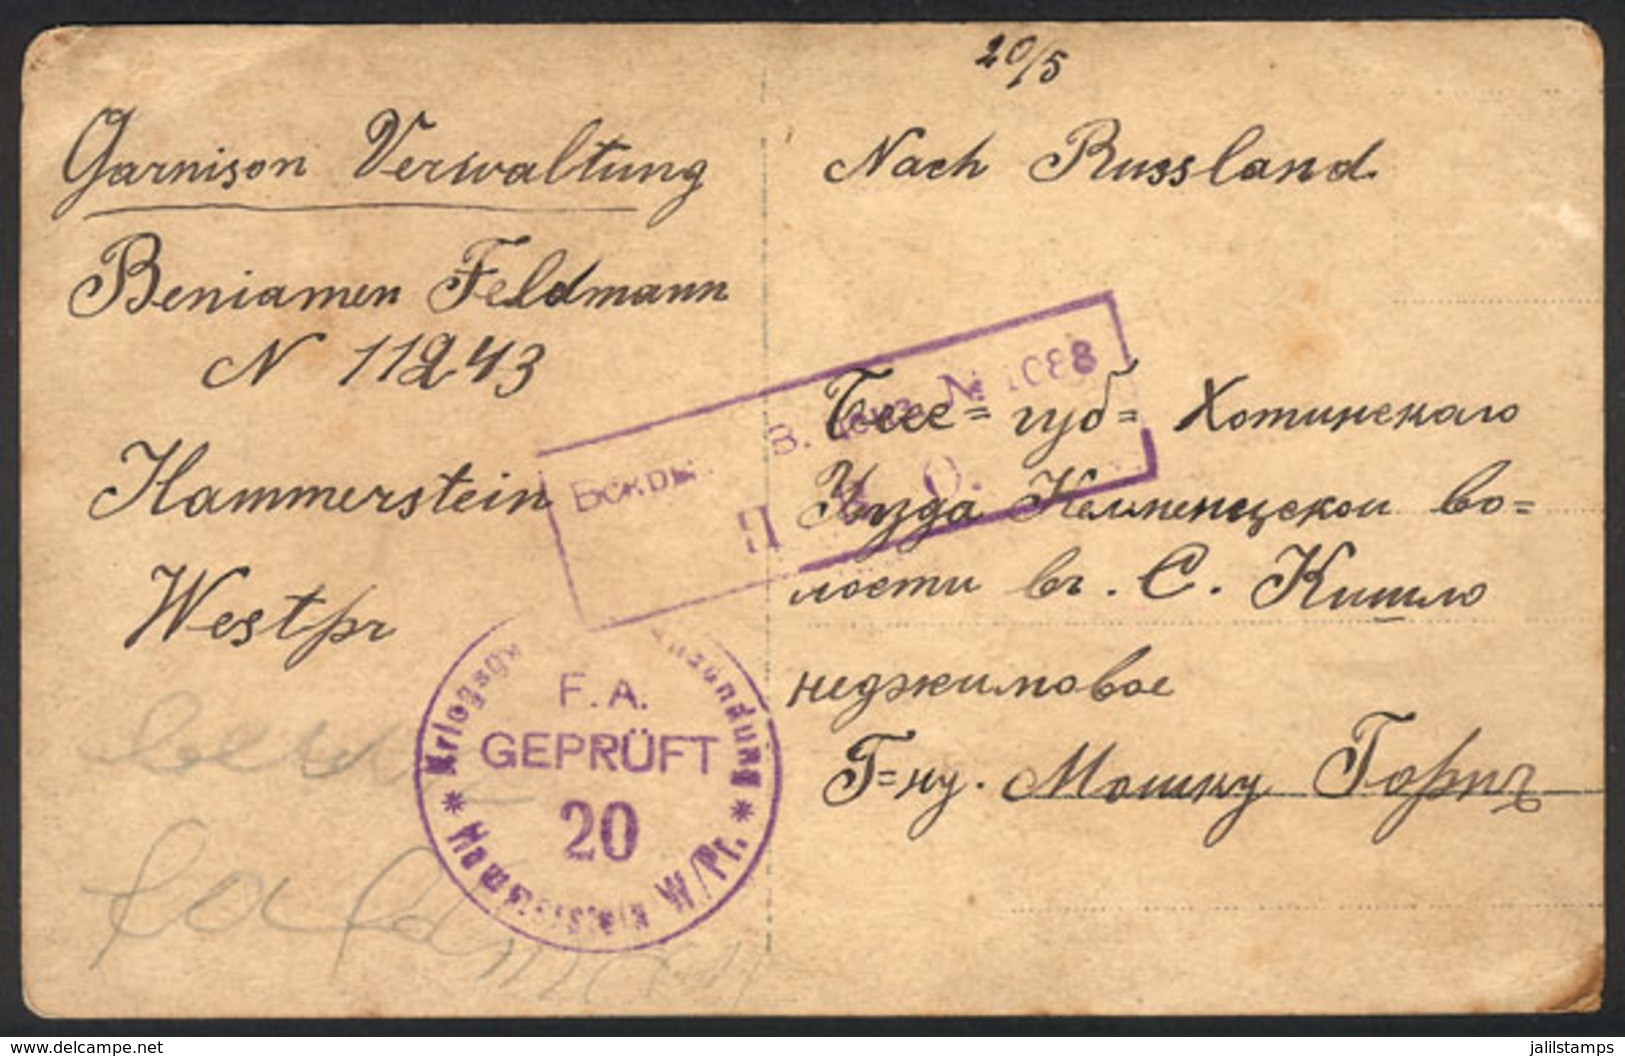 20/5
Garnison Verwaltung
Beniamen Feldmann
N 11243
Hammerstein
Westpr
Nach Russland
Бесс= губ= Хотинскаго
Уѣзда Кельменецской во=
лости въ. С. Кишло
неджимовое
Г=ну. Мошку
В. Ценз. № 1088
П. О.
F. A.
GEPRÜFT
20
Hammerstein W/Pr.
www.delcampe.net
jalilstamps